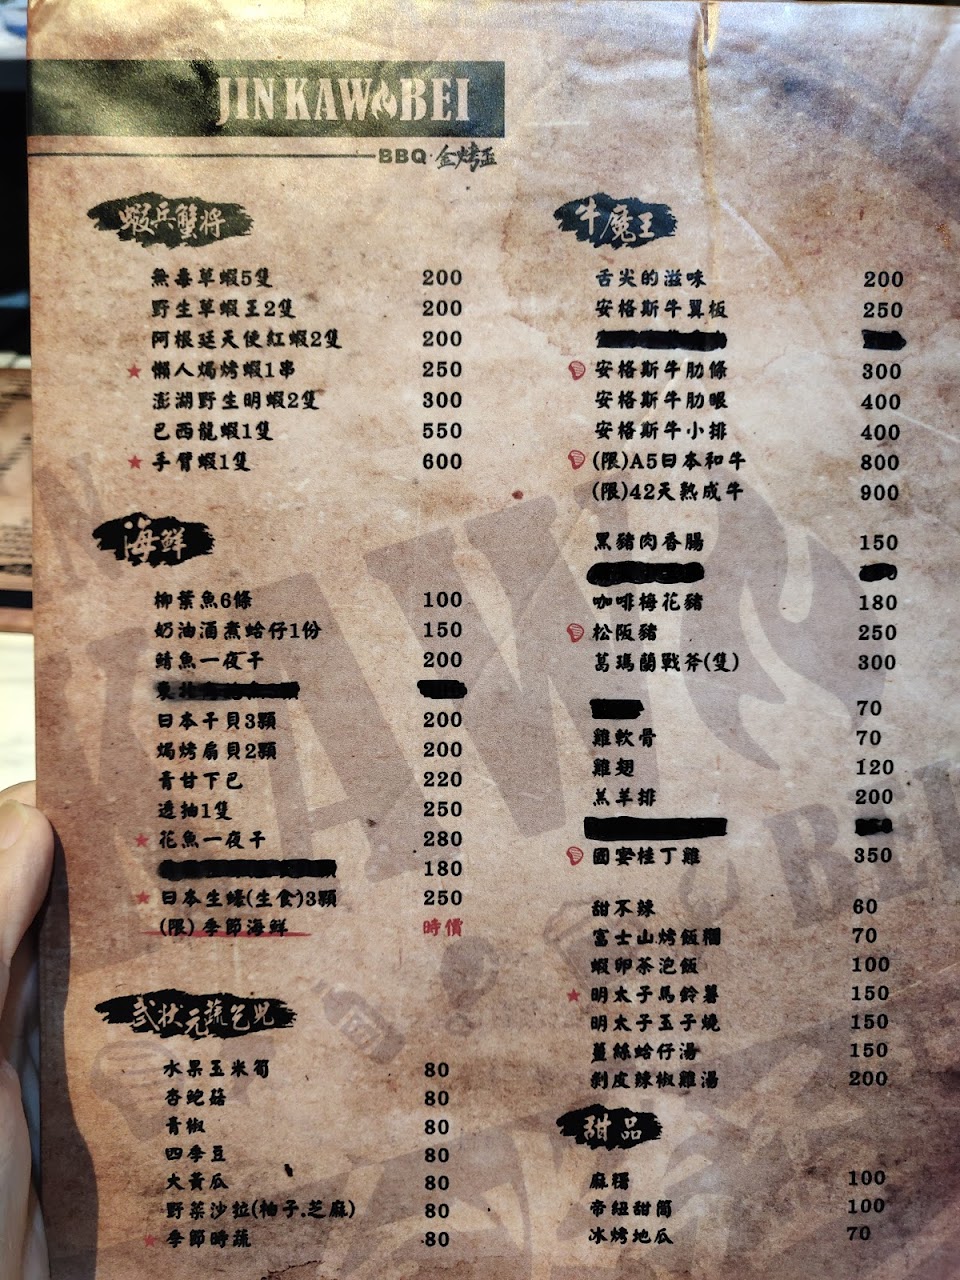 JIN KAWABEI
BBQ·金烤盃
蝦兵蟹將
無毒草蝦5隻 200
野生草蝦王2隻 200
阿根廷天使紅蝦2隻 200
★懶人焗烤蝦1串 250
澎湖野生明蝦2隻 300
巴西龍蝦1隻 550
★手臂蝦1隻 600
海鮮
柳葉魚6條 100
奶油酒煮蛤仔1份 150
鯖魚一夜干 200
日本干貝3顆 200
焗烤扇貝2顆 200
青甘下巴 220
透抽1隻 250
★花魚一夜干 280
180
★日本生蠔(生食)3顆 250
(限)季節海鮮 時價
武狀元蔬乞兒
水果玉米筍 80
杏鮑菇 80
青椒 80
四季豆 80
大黃瓜 80
野菜沙拉(柚子.芝麻) 80
★季節時蔬 80
牛魔王
舌尖的滋味 200
安格斯牛翼板 250
安格斯牛肋條 300
安格斯牛肋眼 400
安格斯牛小排 400
(限)A5日本和牛 800
(限)42天熟成牛 900
黑豬肉香腸 150
咖啡梅花豬 180
松阪豬 250
葛瑪蘭戰斧(隻) 300
70
雞軟骨 70
雞翅 120
羔羊排 200
國宴桂丁雞 350
甜不辣 60
富士山烤飯糰 70
蝦卵茶泡飯 100
★明太子馬鈴薯 150
明太子玉子燒 150
薑絲蛤仔湯 150
剝皮辣椒雞湯 200
甜品
麻糬 100
帝紐甜筒 100
冰烤地瓜 70